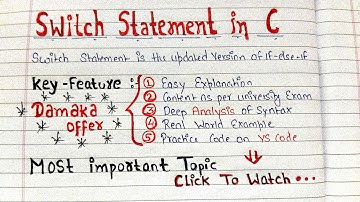 Switch Statement in C
Switch Statement is the updated version of if-else-if
Key-Feature :-
① Easy Explanation
② Content as per university Exam
③ Deep Analysis of Syntax
④ Real World Example
⑤ Practice Code on VS code
Damaka
offer
Most important Topic
Click To Watch...